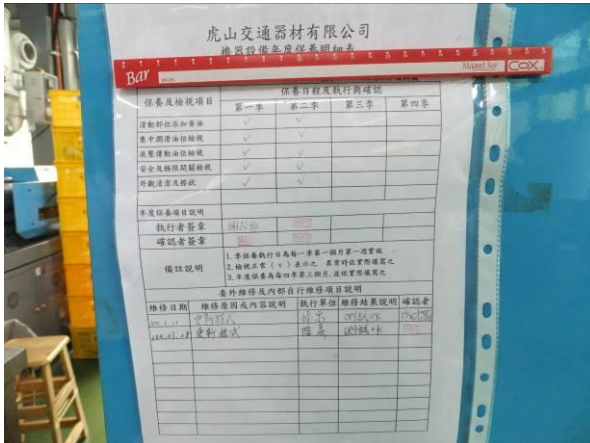 虎山交通器材有限公司
機器設備年度保養明細表
Bar
Magnet Bar COX
保養及檢視項目 保養日程及執行與確認
第一季 第二季 第三季 第四季
滑動部位添加黃油 ✓ ✓
集中潤滑油位檢視 ✓ ✓
液壓傳動油位檢視 ✓ ✓
安全及極限開關檢視 ✓ ✓
外觀清潔及擦拭 ✓ ✓
年度保養項目說明
執行者簽章
確認者簽章
備註說明
1. 季保養執行日為每一季第一個月第一週實施
2. 檢視正常(v)表示之 異常時依實際填寫之
3. 年度保養為每四季第三個月,並依實際填寫之
委外維修及內部自行維修項目說明
維修日期 維修原因或內容說明 執行單位 維修結果說明 確認者
更新程式
更新程式